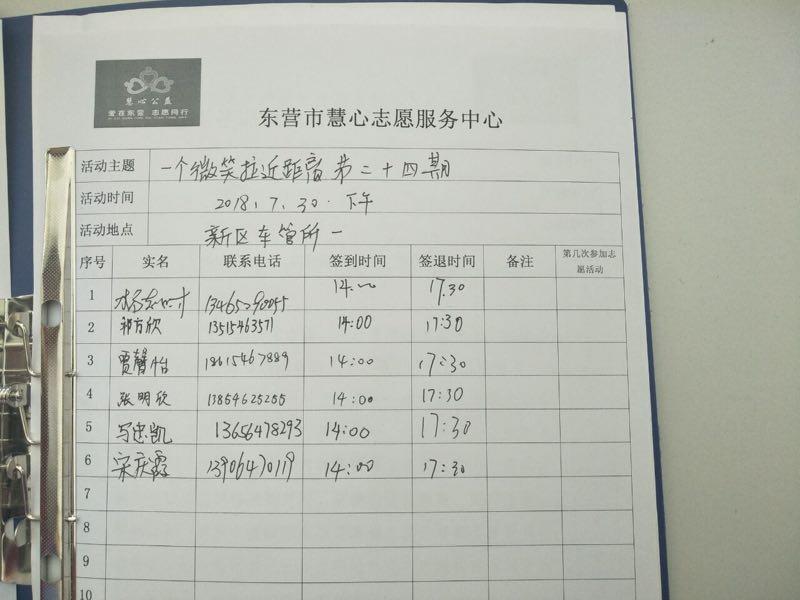 慧心公益
爱在东营 志愿同行
东营市慧心志愿服务中心
活动主题 一个微笑拉近距离第二十四期
活动时间 2018.7.30.下午
活动地点 新区车管所一
序号 实名 联系电话 签到时间 签退时间 备注 第几次参加志愿活动
1 14:00 17.30
2 祁方欣 13515463571 14:00 17:30
3 贾馨怡 18615467889 14:00 17:30
4 张明欣 13854625255 14:00 17:30
5 忠凯 13656478293 14:00 17:30
6 宋庆霞 13906470119 14:00 17:30
7
8
9
10